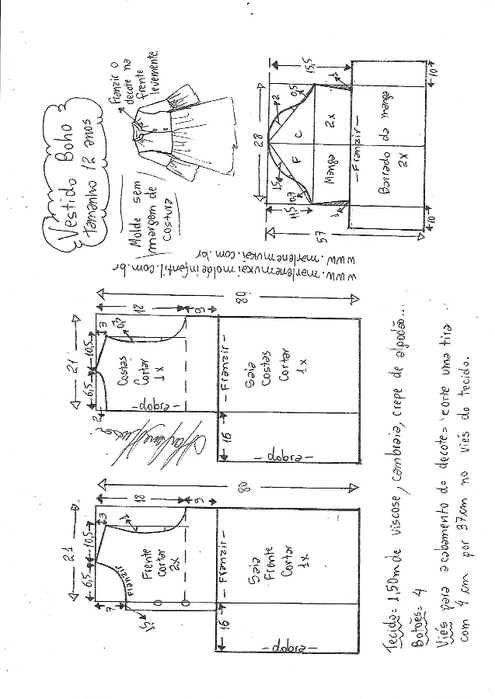 Vestido Boho
tamanho 12 anos
Franzir o
decote na
frente
levemente.
Molde sem
margem de
costura
www.marlenemukaimoldeinfantil.com.br
www.marlenemukai.com.br
28
15,5
11,5
57
F
C
2
0,5
1,5
0,7
1
1
Manga
2x
-Franzir-
Barrado da manga
2x
10
10
21
6,5
10,5
3
2
18
9
80
Costas
Cortar
1x
-dobra-
-Franzir-
Saia
Costas
Cortar
1x
16
-dobra-
21
6,5
10,5
3
7
18
9
80
Franzir
Frente
cortar
2x
-Franzir-
Saia
Frente
Cortar
1x
16
-dobra-
Tecido= 1,50m de viscose, cambraia, crepe de algodão...
Botões= 4
Viés para acabamento do decote= corte uma tira
com 4 cm por 37cm no viés do tecido.